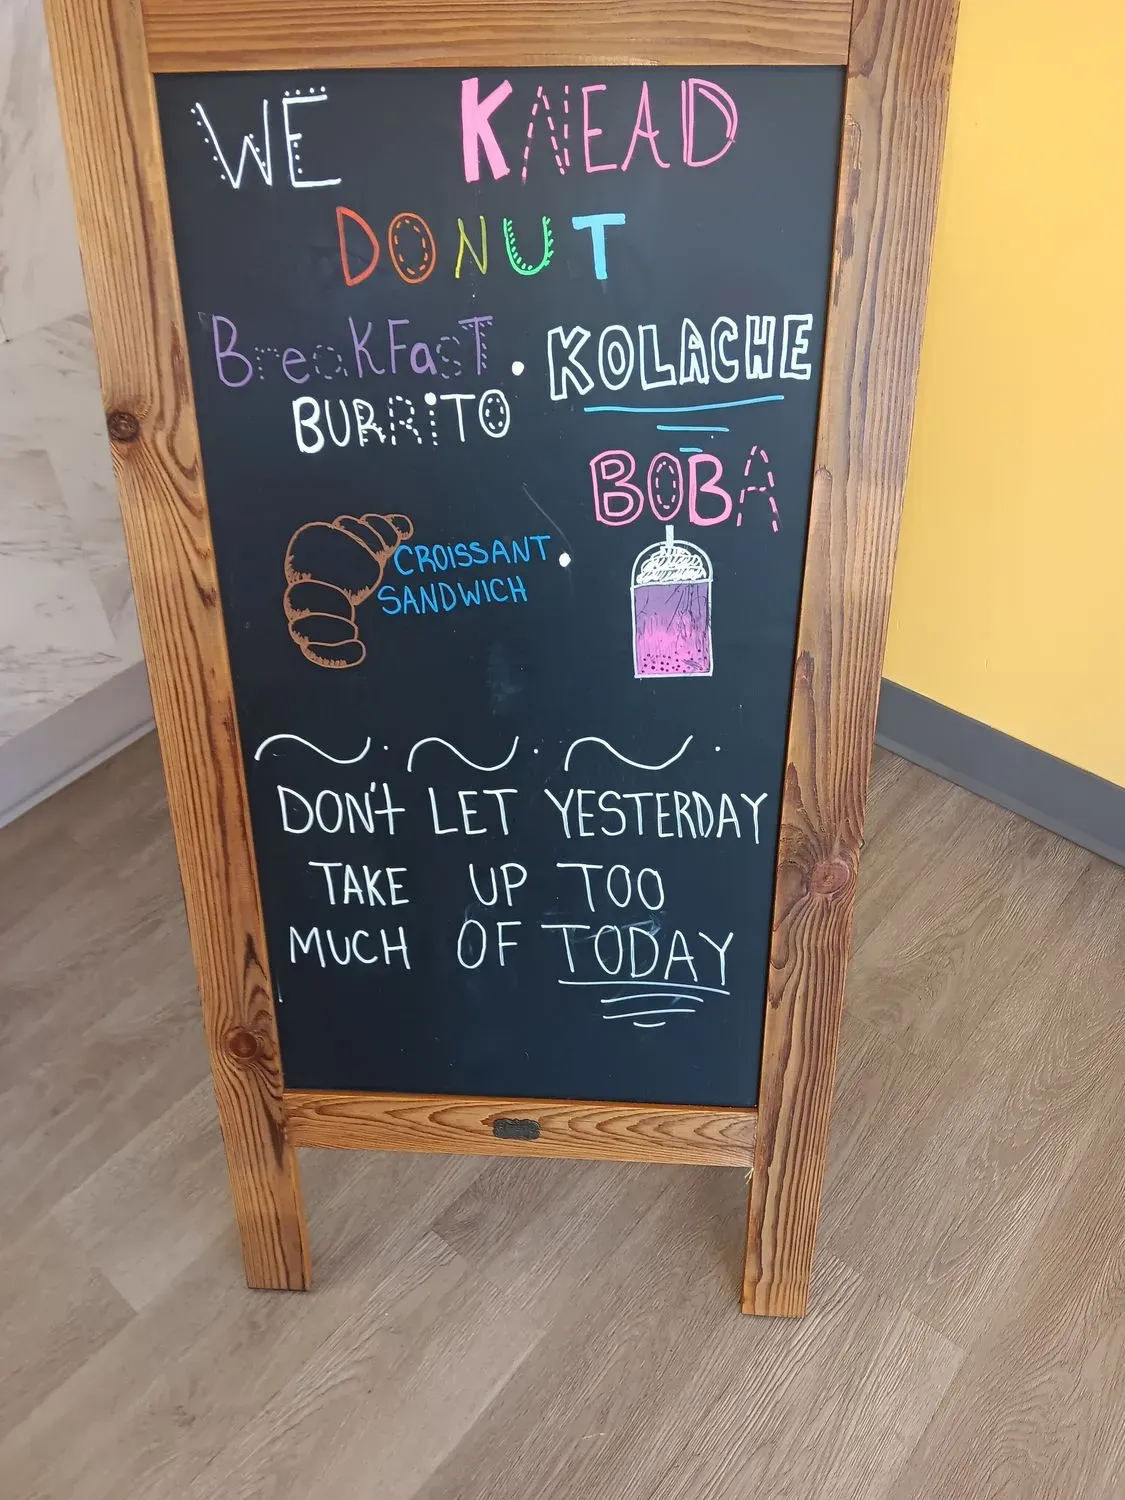 WE KNEAD
DONUT
BreaKFasT • KOLACHE
BURRiTO
BOBA
CROISSANT •
SANDWICH
DON't LET YESTERDAY
TAKE UP TOO
MUCH OF TODAY